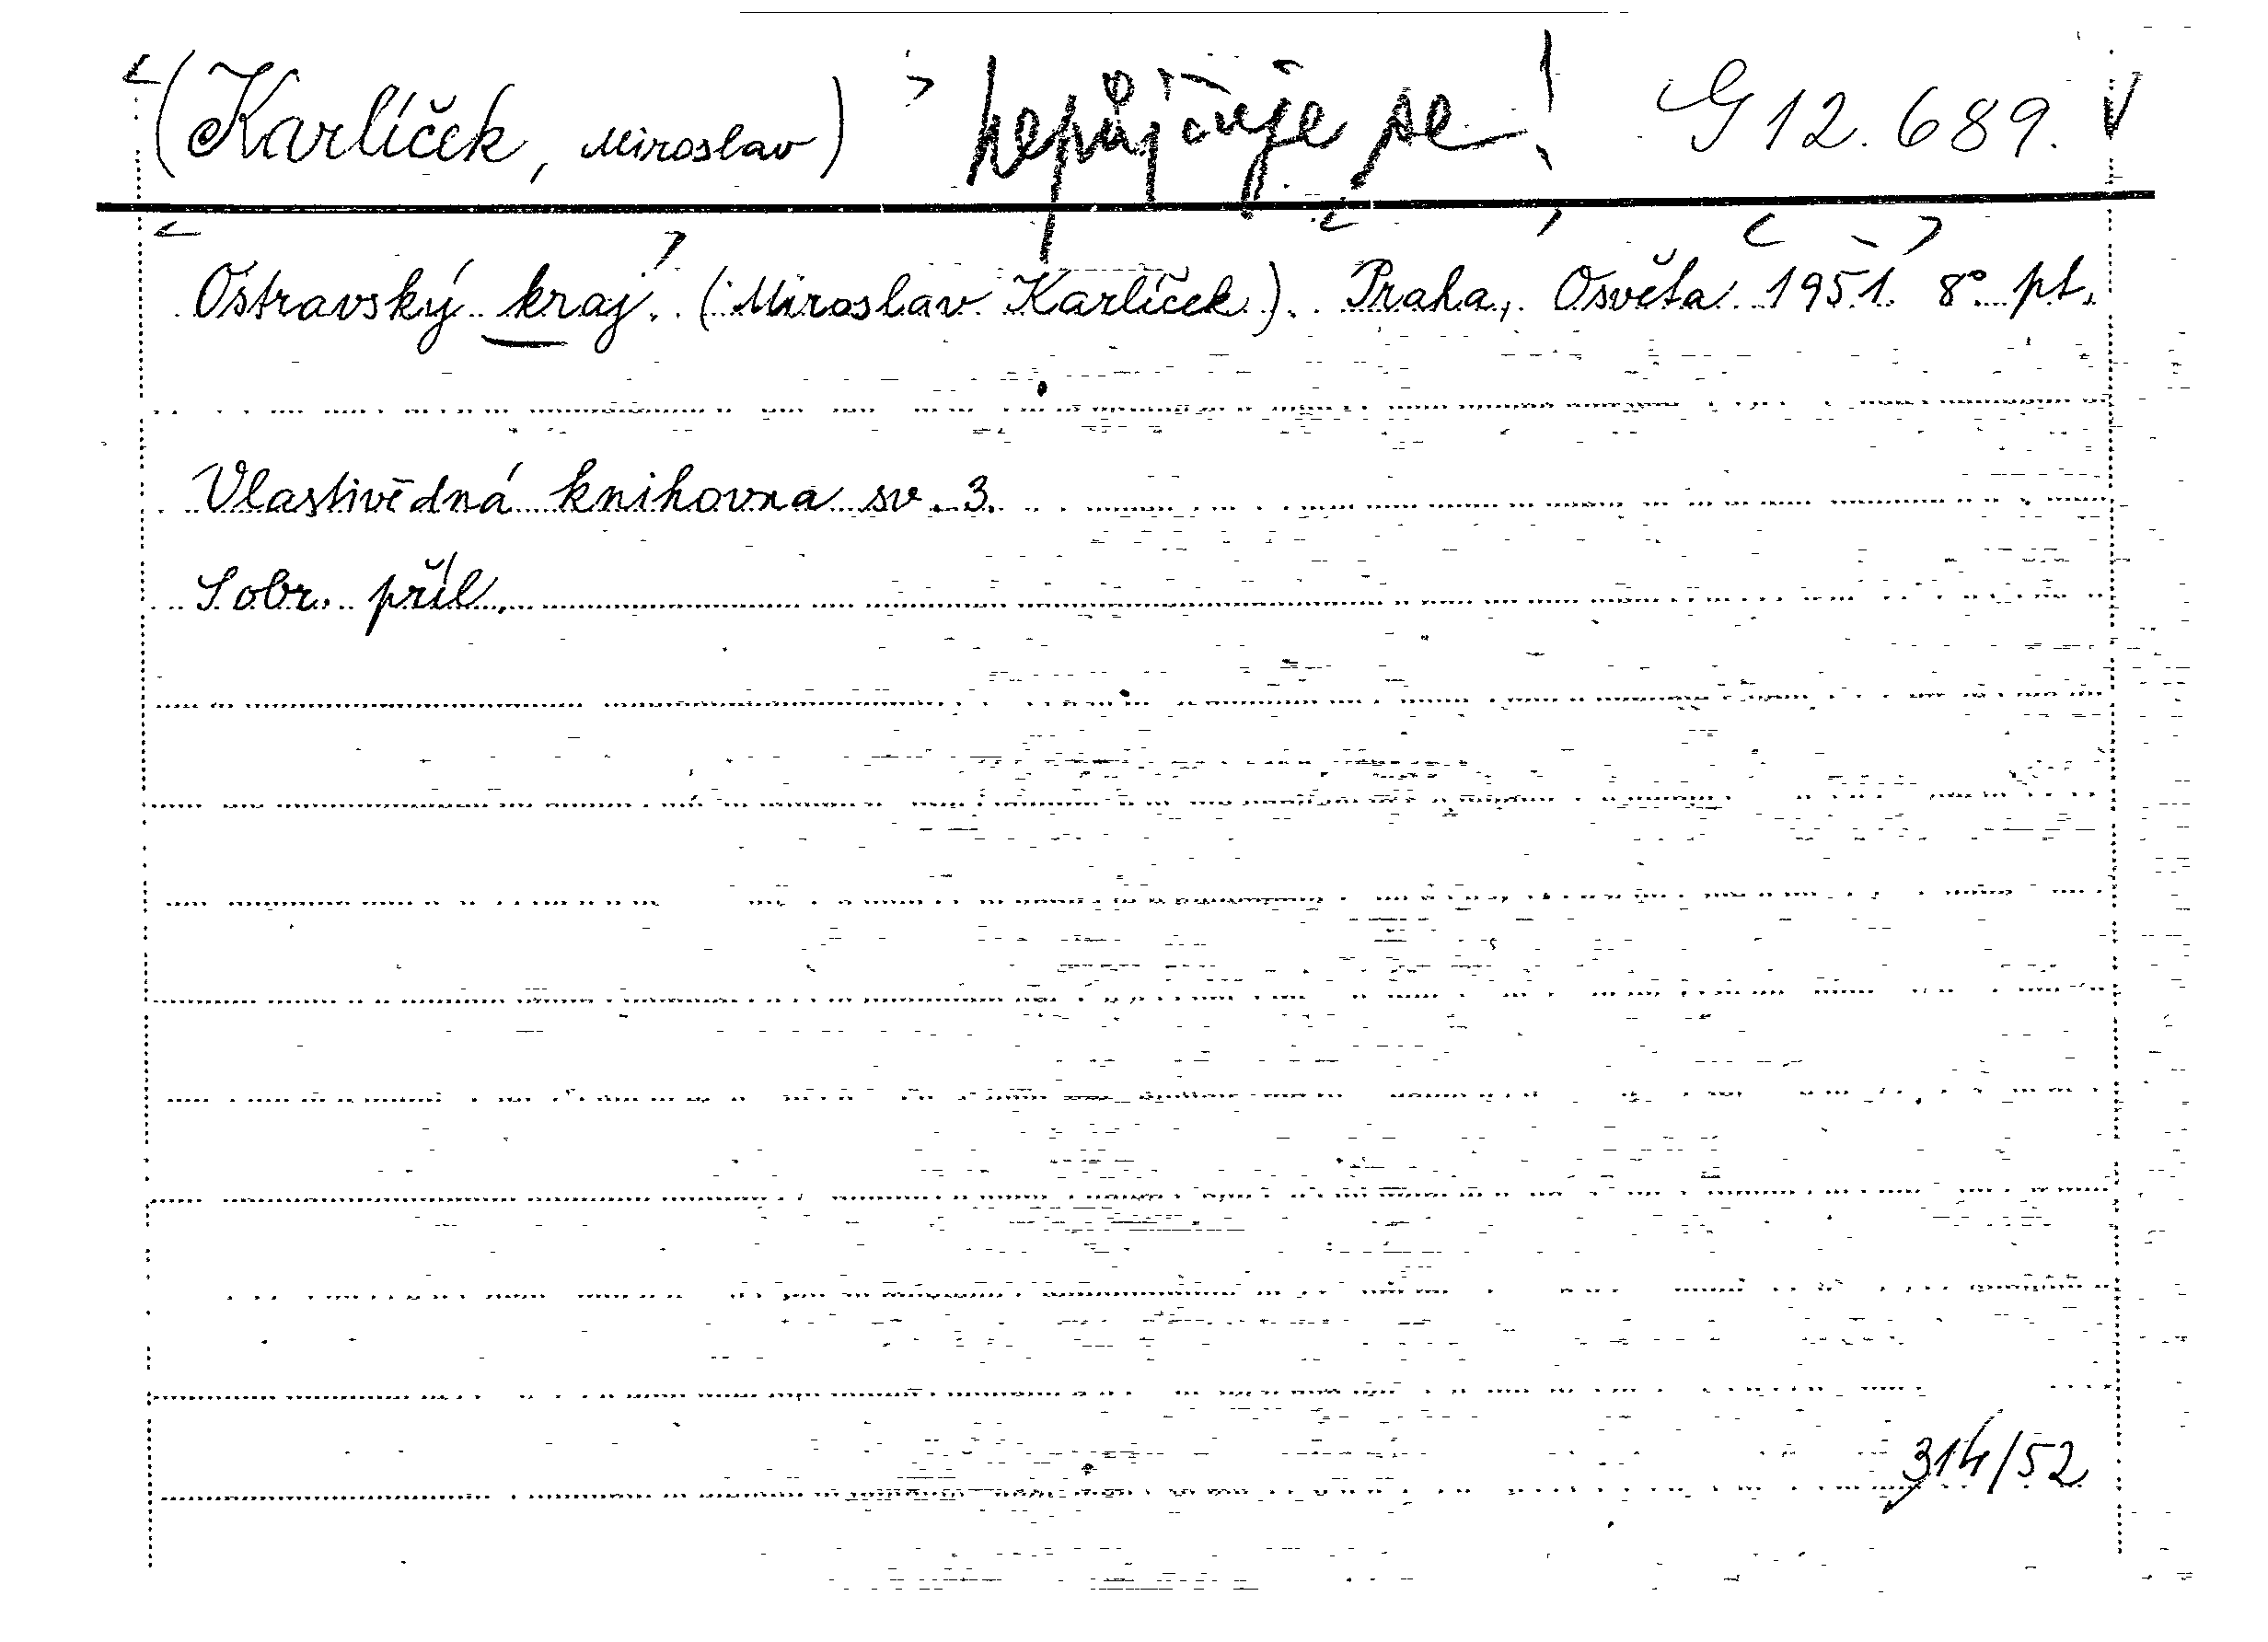 (Karlíček, Miroslav) nepůjčuje se! G 12.689.
Ostravský kraj. (Miroslav Karlíček). Praha, Osvěta 1951. 8° pt.
Vlastivědná knihovna sv. 3.
S obr. příl.
314/52